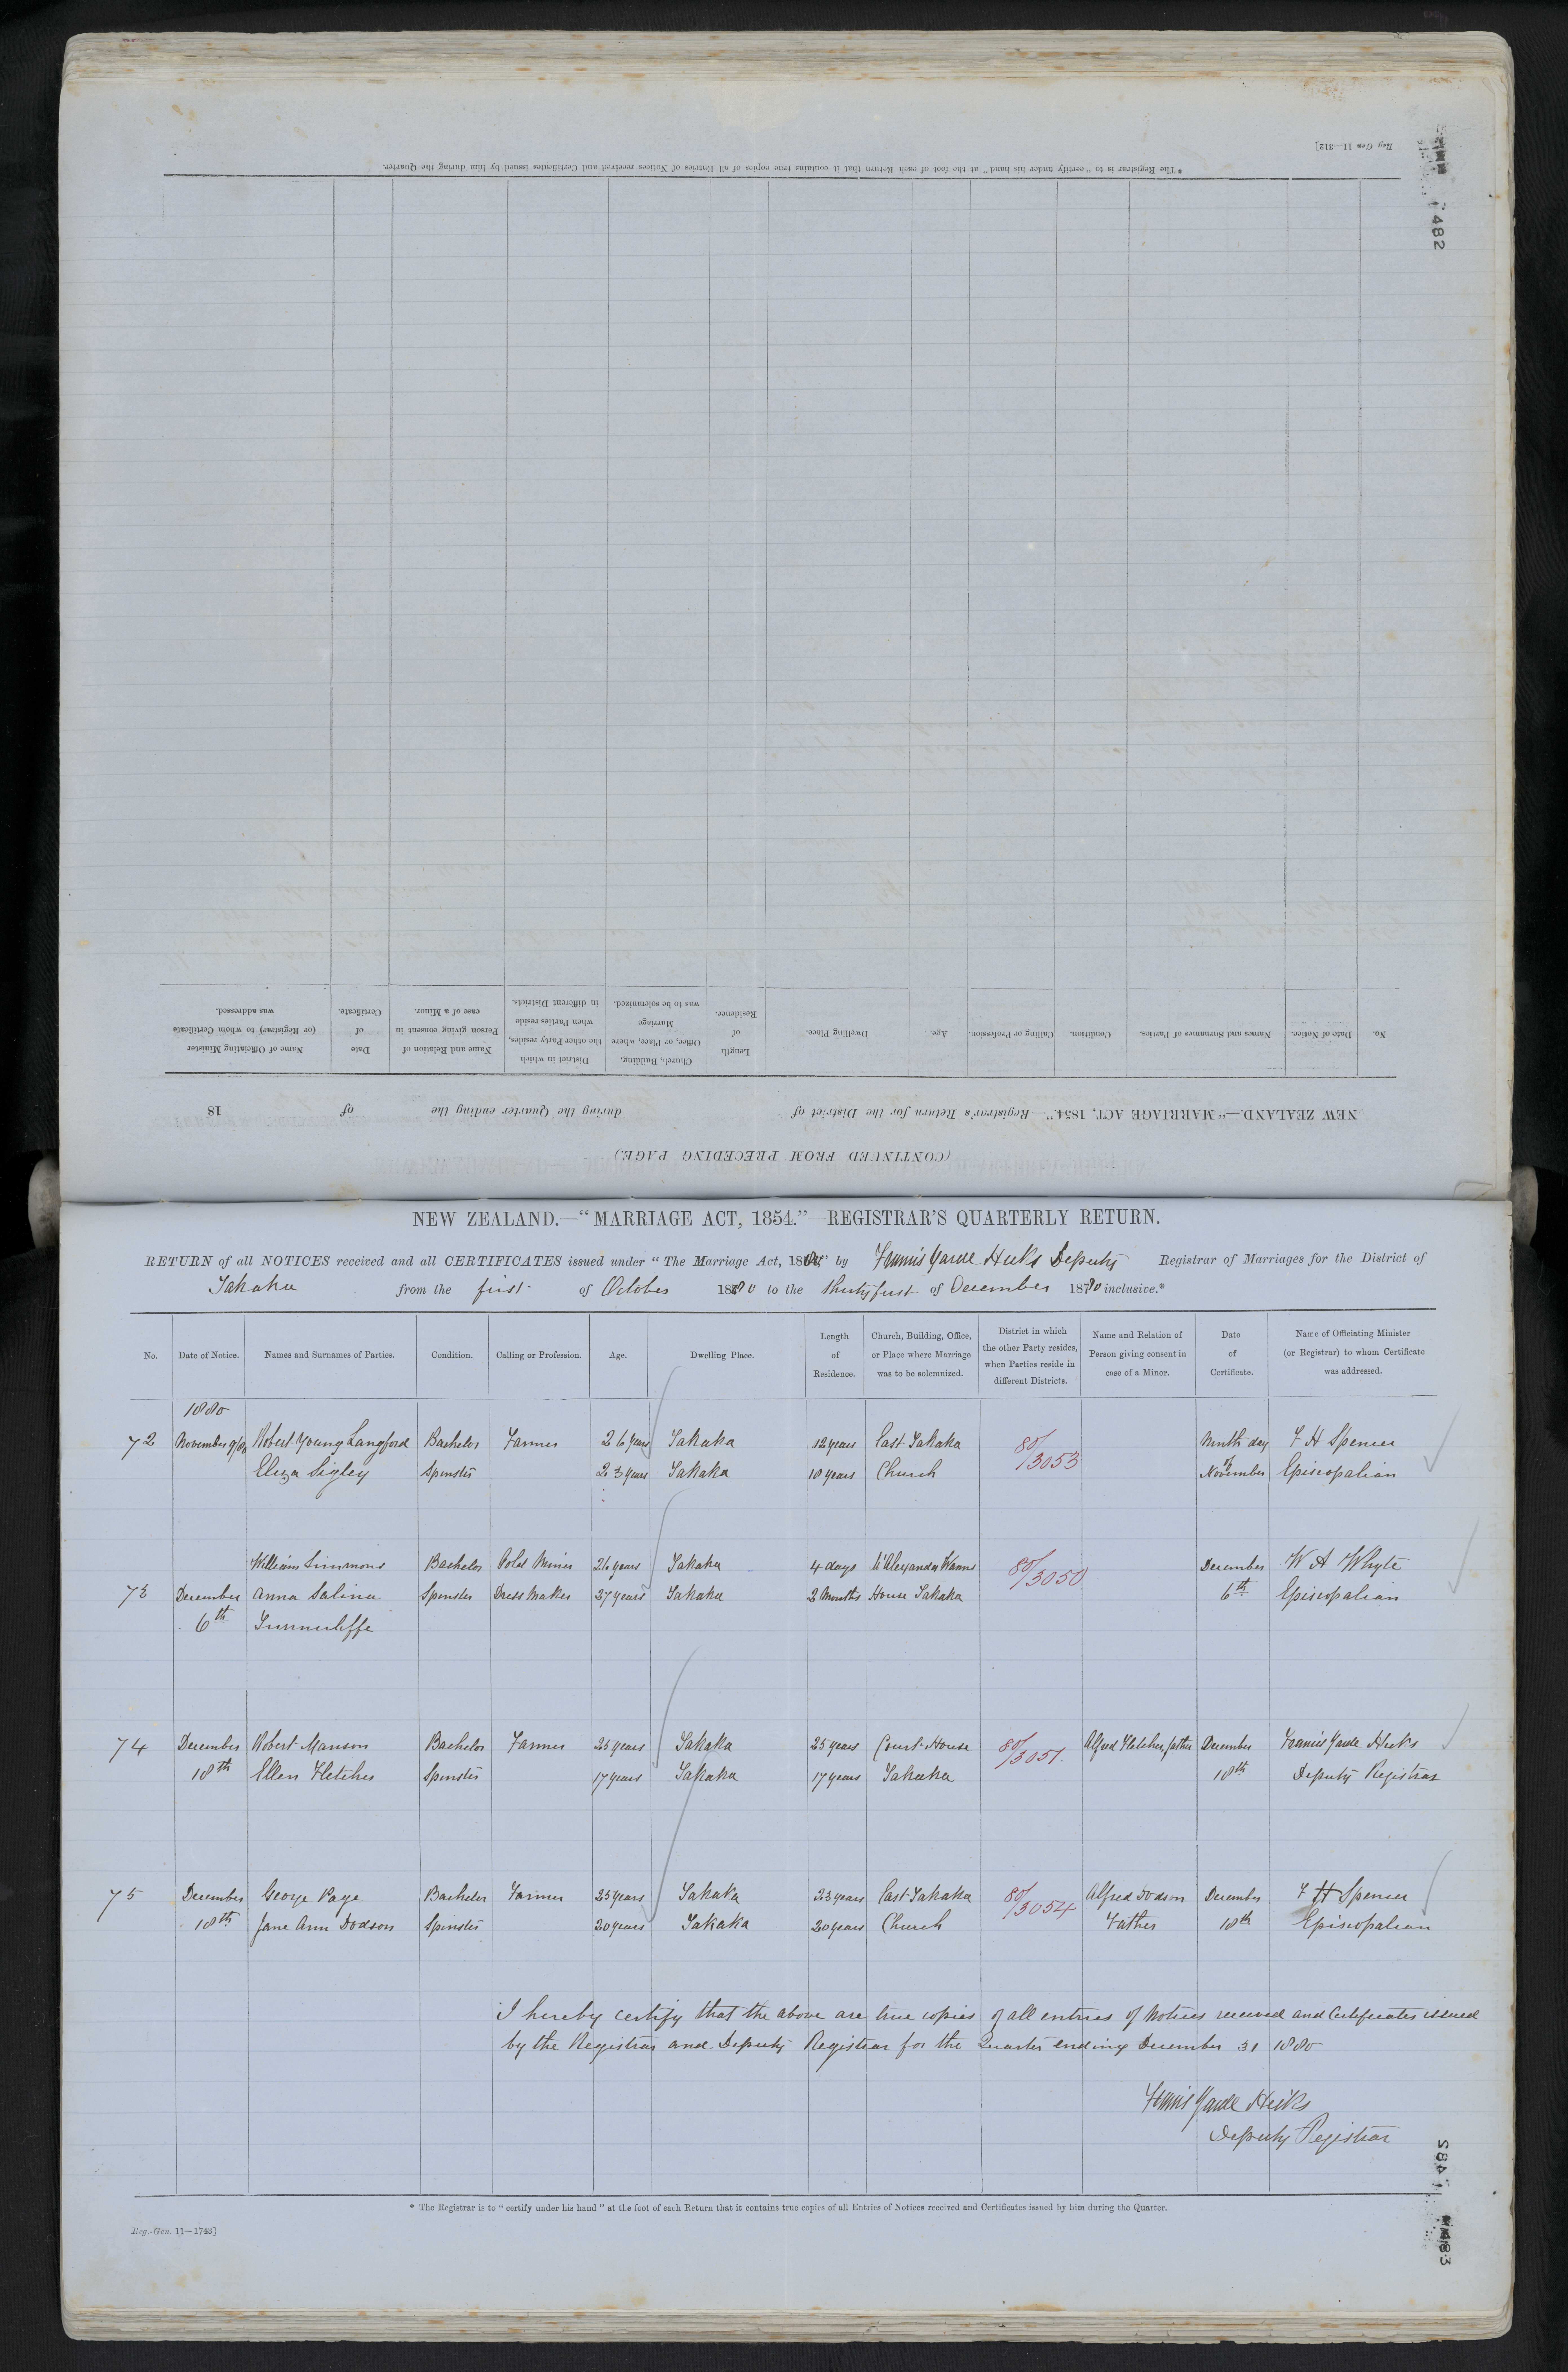 Reg Gen 11—312]
482
*The Registrar is to "certify under his hand" at the foot of each Return that it contains true copies of all Entries of Notices received and Certificates issued by him during the Quarter.
(CONTINUED FROM PRECEDING PAGE.)
NEW ZEALAND.—"MARRIAGE ACT, 1854."—Registrar's Return for the District of during the Quarter ending the of 18
No. Date of Notice. Names and Surnames of Parties. Condition. Calling or Profession. Age. Dwelling Place. Length of Residence. Church, Building, Office, or Place, where Marriage was to be solemnized. District in which the other Party resides, when Parties reside in different Districts. Name and Relation of Person giving consent in case of a Minor. Date of Certificate. Name of Officiating Minister (or Registrar) to whom Certificate was addressed.
NEW ZEALAND.—"MARRIAGE ACT, 1854."—REGISTRAR'S QUARTERLY RETURN.
RETURN of all NOTICES received and all CERTIFICATES issued under "The Marriage Act, 1880," by Francis Yarde Hicks Deputy Registrar of Marriages for the District of
Takaka from the first of October 1880 to the thirty first of December 1880 inclusive.*
No. Date of Notice. Names and Surnames of Parties. Condition. Calling or Profession. Age. Dwelling Place. Length of Residence. Church, Building, Office, or Place where Marriage was to be solemnized. District in which the other Party resides, when Parties reside in different Districts. Name and Relation of Person giving consent in case of a Minor. Date of Certificate. Name of Officiating Minister (or Registrar) to whom Certificate was addressed.
1880
72 November 9/80 Robert Young Langford Bachelor Farmer 26 years Takaka 12 years East Takaka 80/3053 Ninth day F H Spencer
Eliza Sigley Spinster 23 years Takaka 10 years Church of November Episcopalian
William Simmons Bachelor Gold Miner 26 years Takaka 4 days Alexander 80/3050 December W A Whyte
73 December Anna Salina Spinster Dress Maker 27 years Takaka 2 Months House Takaka 6th Episcopalian
6th Tunnicliffe
74 December Robert Manson Bachelor Farmer 25 years Takaka 25 years Court House 80/3051. Alfred Fletcher, father December Francis Yarde Hicks
18th Ellen Fletcher Spinster 17 years Takaka 17 years Takaka 18th Deputy Registrar
75 December George Page Bachelor Farmer 25 years Takaka 23 years East Takaka 80/3054 Alfred Dodson December F H Spencer
18th Jane Ann Dodson Spinster 20 years Takaka 20 years Church Father 18th Episcopalian
I hereby certify that the above are true copies of all entries of Notices received and Certificates issued
by the Registrar and Deputy Registrar for the Quarter ending December 31 1880
Francis Yarde Hicks
Deputy Registrar
* The Registrar is to "certify under his hand" at the foot of each Return that it contains true copies of all Entries of Notices received and Certificates issued by him during the Quarter.
Reg.-Gen. 11—1740]